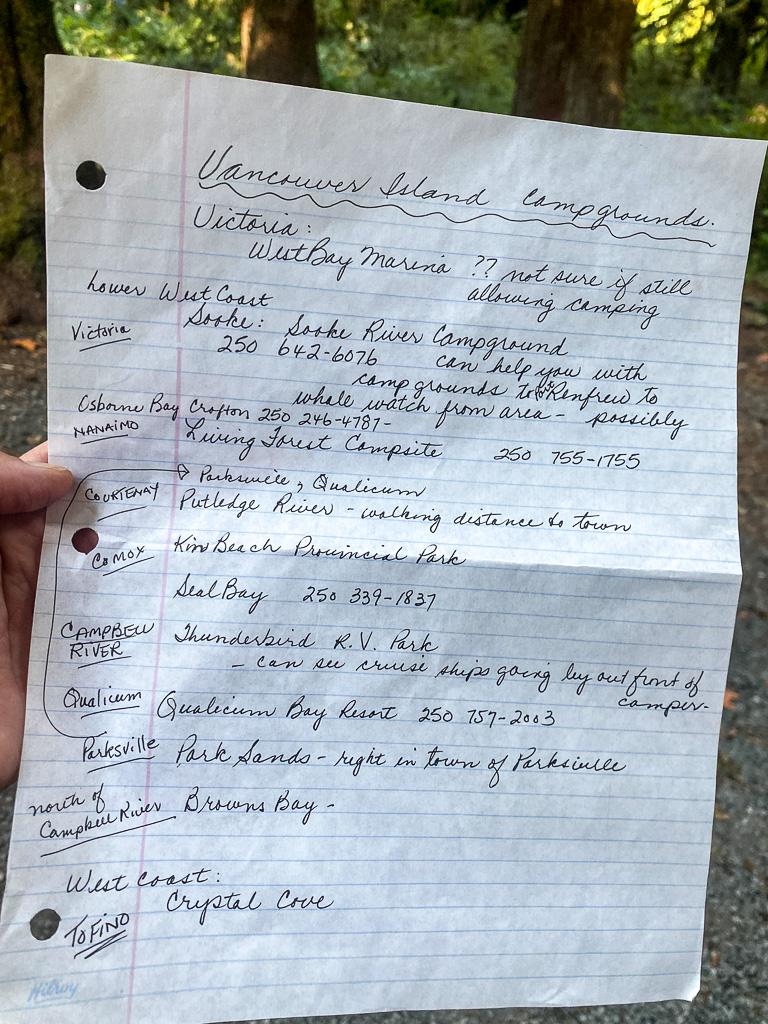 Vancouver Island Campgrounds.
Victoria:
West Bay Marina ?? not sure if still
allowing camping
Lower West Coast
Victoria Sooke: Sooke River Campground
250 642-6076 can help you with
camp grounds to Port Renfrew to
whale watch from area - possibly
Osborne Bay Crofton 250 246-4787-
NANAIMO Living Forest Campsite 250 755-1755
Parksville, Qualicum
COURTENAY Putledge River - walking distance to town
COMOX Kin Beach Provincial Park
Seal Bay 250 339-1837
CAMPBELL RIVER Thunderbird R.V. Park
- can see cruise ships going by out front of
camper-
Qualicum Qualicum Bay Resort 250 757-2003
Parksville Park Sands - right in town of Parksville
north of
Campbell River Browns Bay -
West Coast:
Crystal Cove
TOFINO
Hilroy